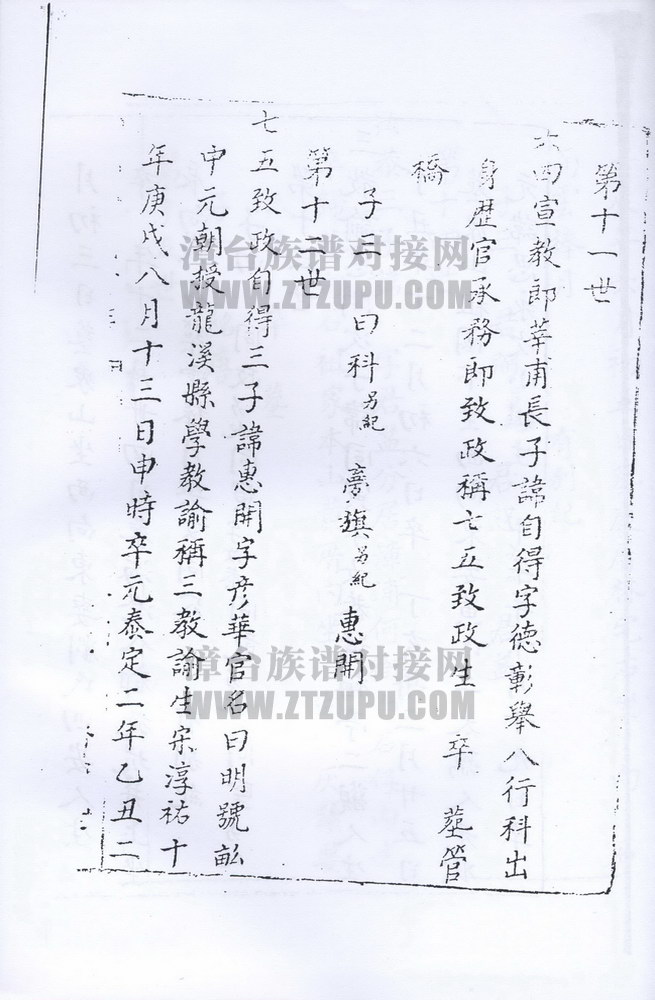 第十一世
六四宣教郎莘甫長子諱自得字德彰舉八行科出
身歷官承務郎致政稱七五致政生　卒　塟管
橋
子三　曰科另紀　夢旗另紀　惠開
第十二世
七五致政自得三子諱惠開字彦華官名曰明號畆
中元朝授龍溪縣學教諭稱三教諭生宋淳祐十
年庚戌八月十三日申時卒元泰定二年乙丑二
漳台族谱对接网
WWW.ZTZUPU.COM
漳台族谱对接网
WWW.ZTZUPU.COM